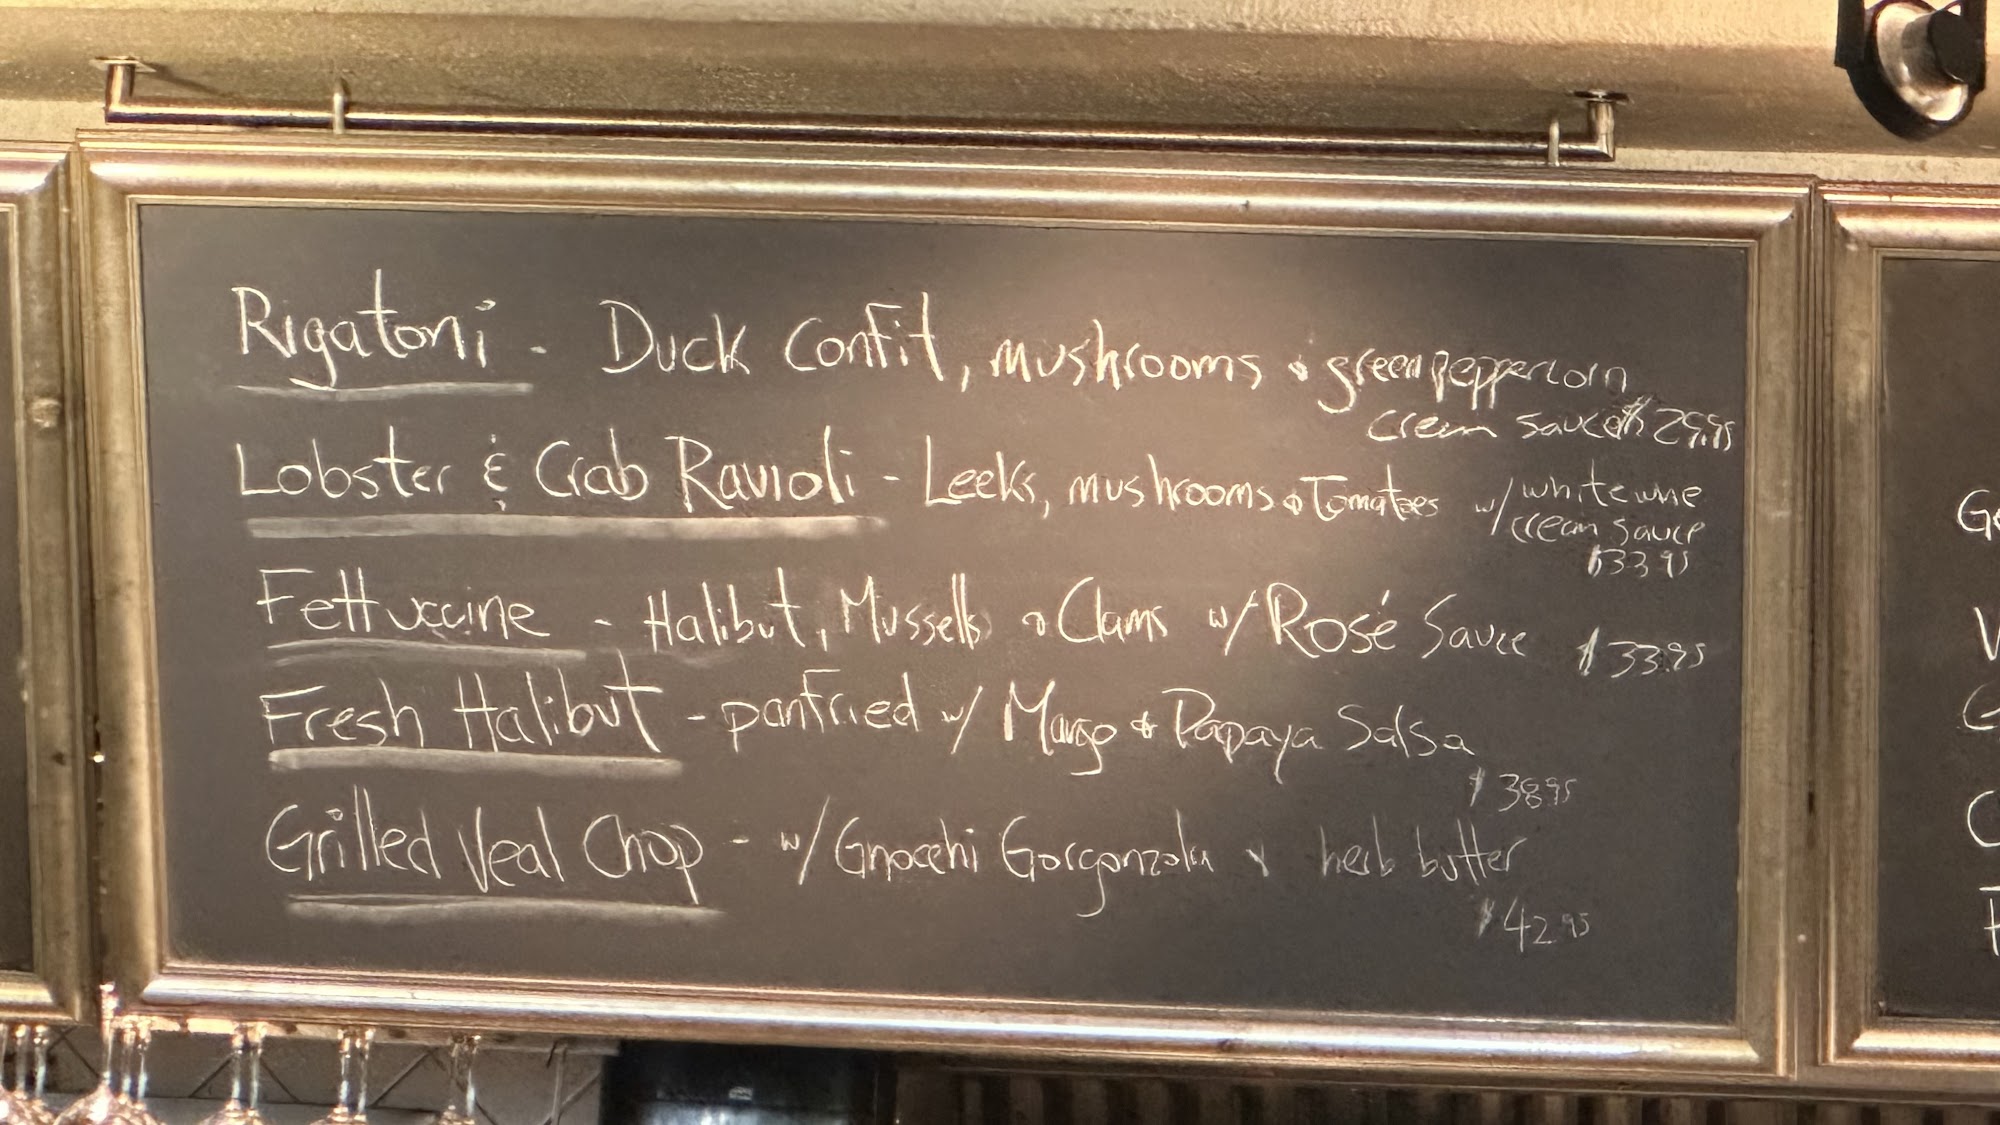 Rigatoni - Duck Confit, mushrooms & green peppercorn
cream sauce $29.95
Lobster & Crab Ravioli - Leeks, mushrooms & Tomatoes w/ white wine
cream sauce
$33.95
Fettuccine - Halibut, Mussells & Clams w/ Rosé Sauce $33.95
Fresh Halibut - panfried w/ Mango & Papaya Salsa
$38.95
Grilled Veal Chop - w/ Gnocchi Gorgonzola & herb butter
$42.95